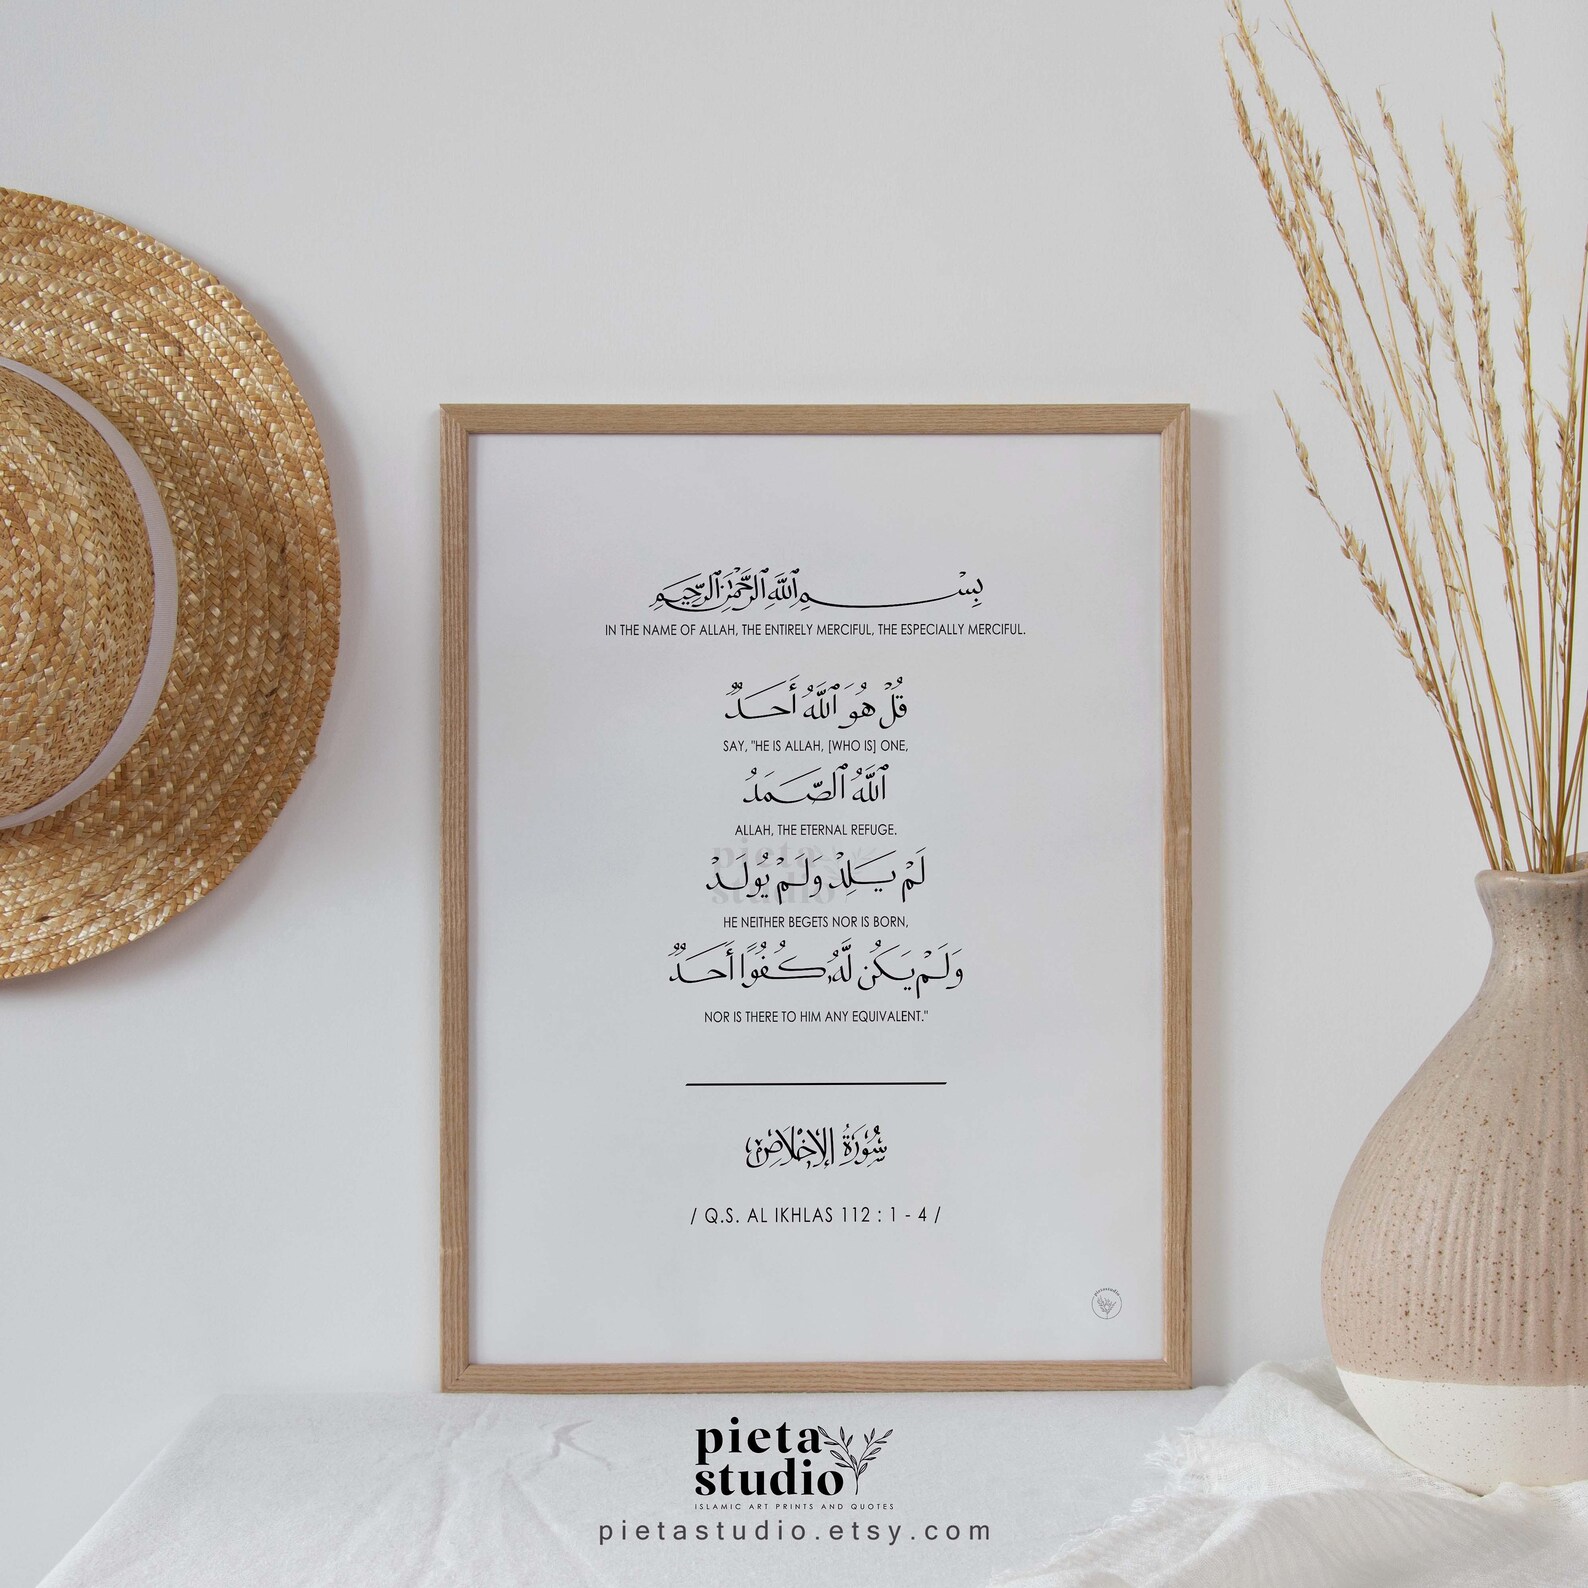 بِسْمِ ٱللَّهِ ٱلرَّحْمَٰنِ ٱلرَّحِيمِ
IN THE NAME OF ALLAH, THE ENTIRELY MERCIFUL, THE ESPECIALLY MERCIFUL.
قُلْ هُوَ ٱللَّهُ أَحَدٌ
SAY, "HE IS ALLAH, [WHO IS] ONE,
ٱللَّهُ ٱلصَّمَدُ
ALLAH, THE ETERNAL REFUGE.
لَمْ يَلِدْ وَلَمْ يُولَدْ
pieta
studio
HE NEITHER BEGETS NOR IS BORN,
وَلَمْ يَكُن لَّهُۥ كُفُوًا أَحَدٌۢ
NOR IS THERE TO HIM ANY EQUIVALENT."
سُورَةُ الإِخْلَاصِ
/ Q.S. AL IKHLAS 112 : 1 - 4 /
pietastudio
pieta
studio
ISLAMIC ART PRINTS AND QUOTES
pietastudio.etsy.com